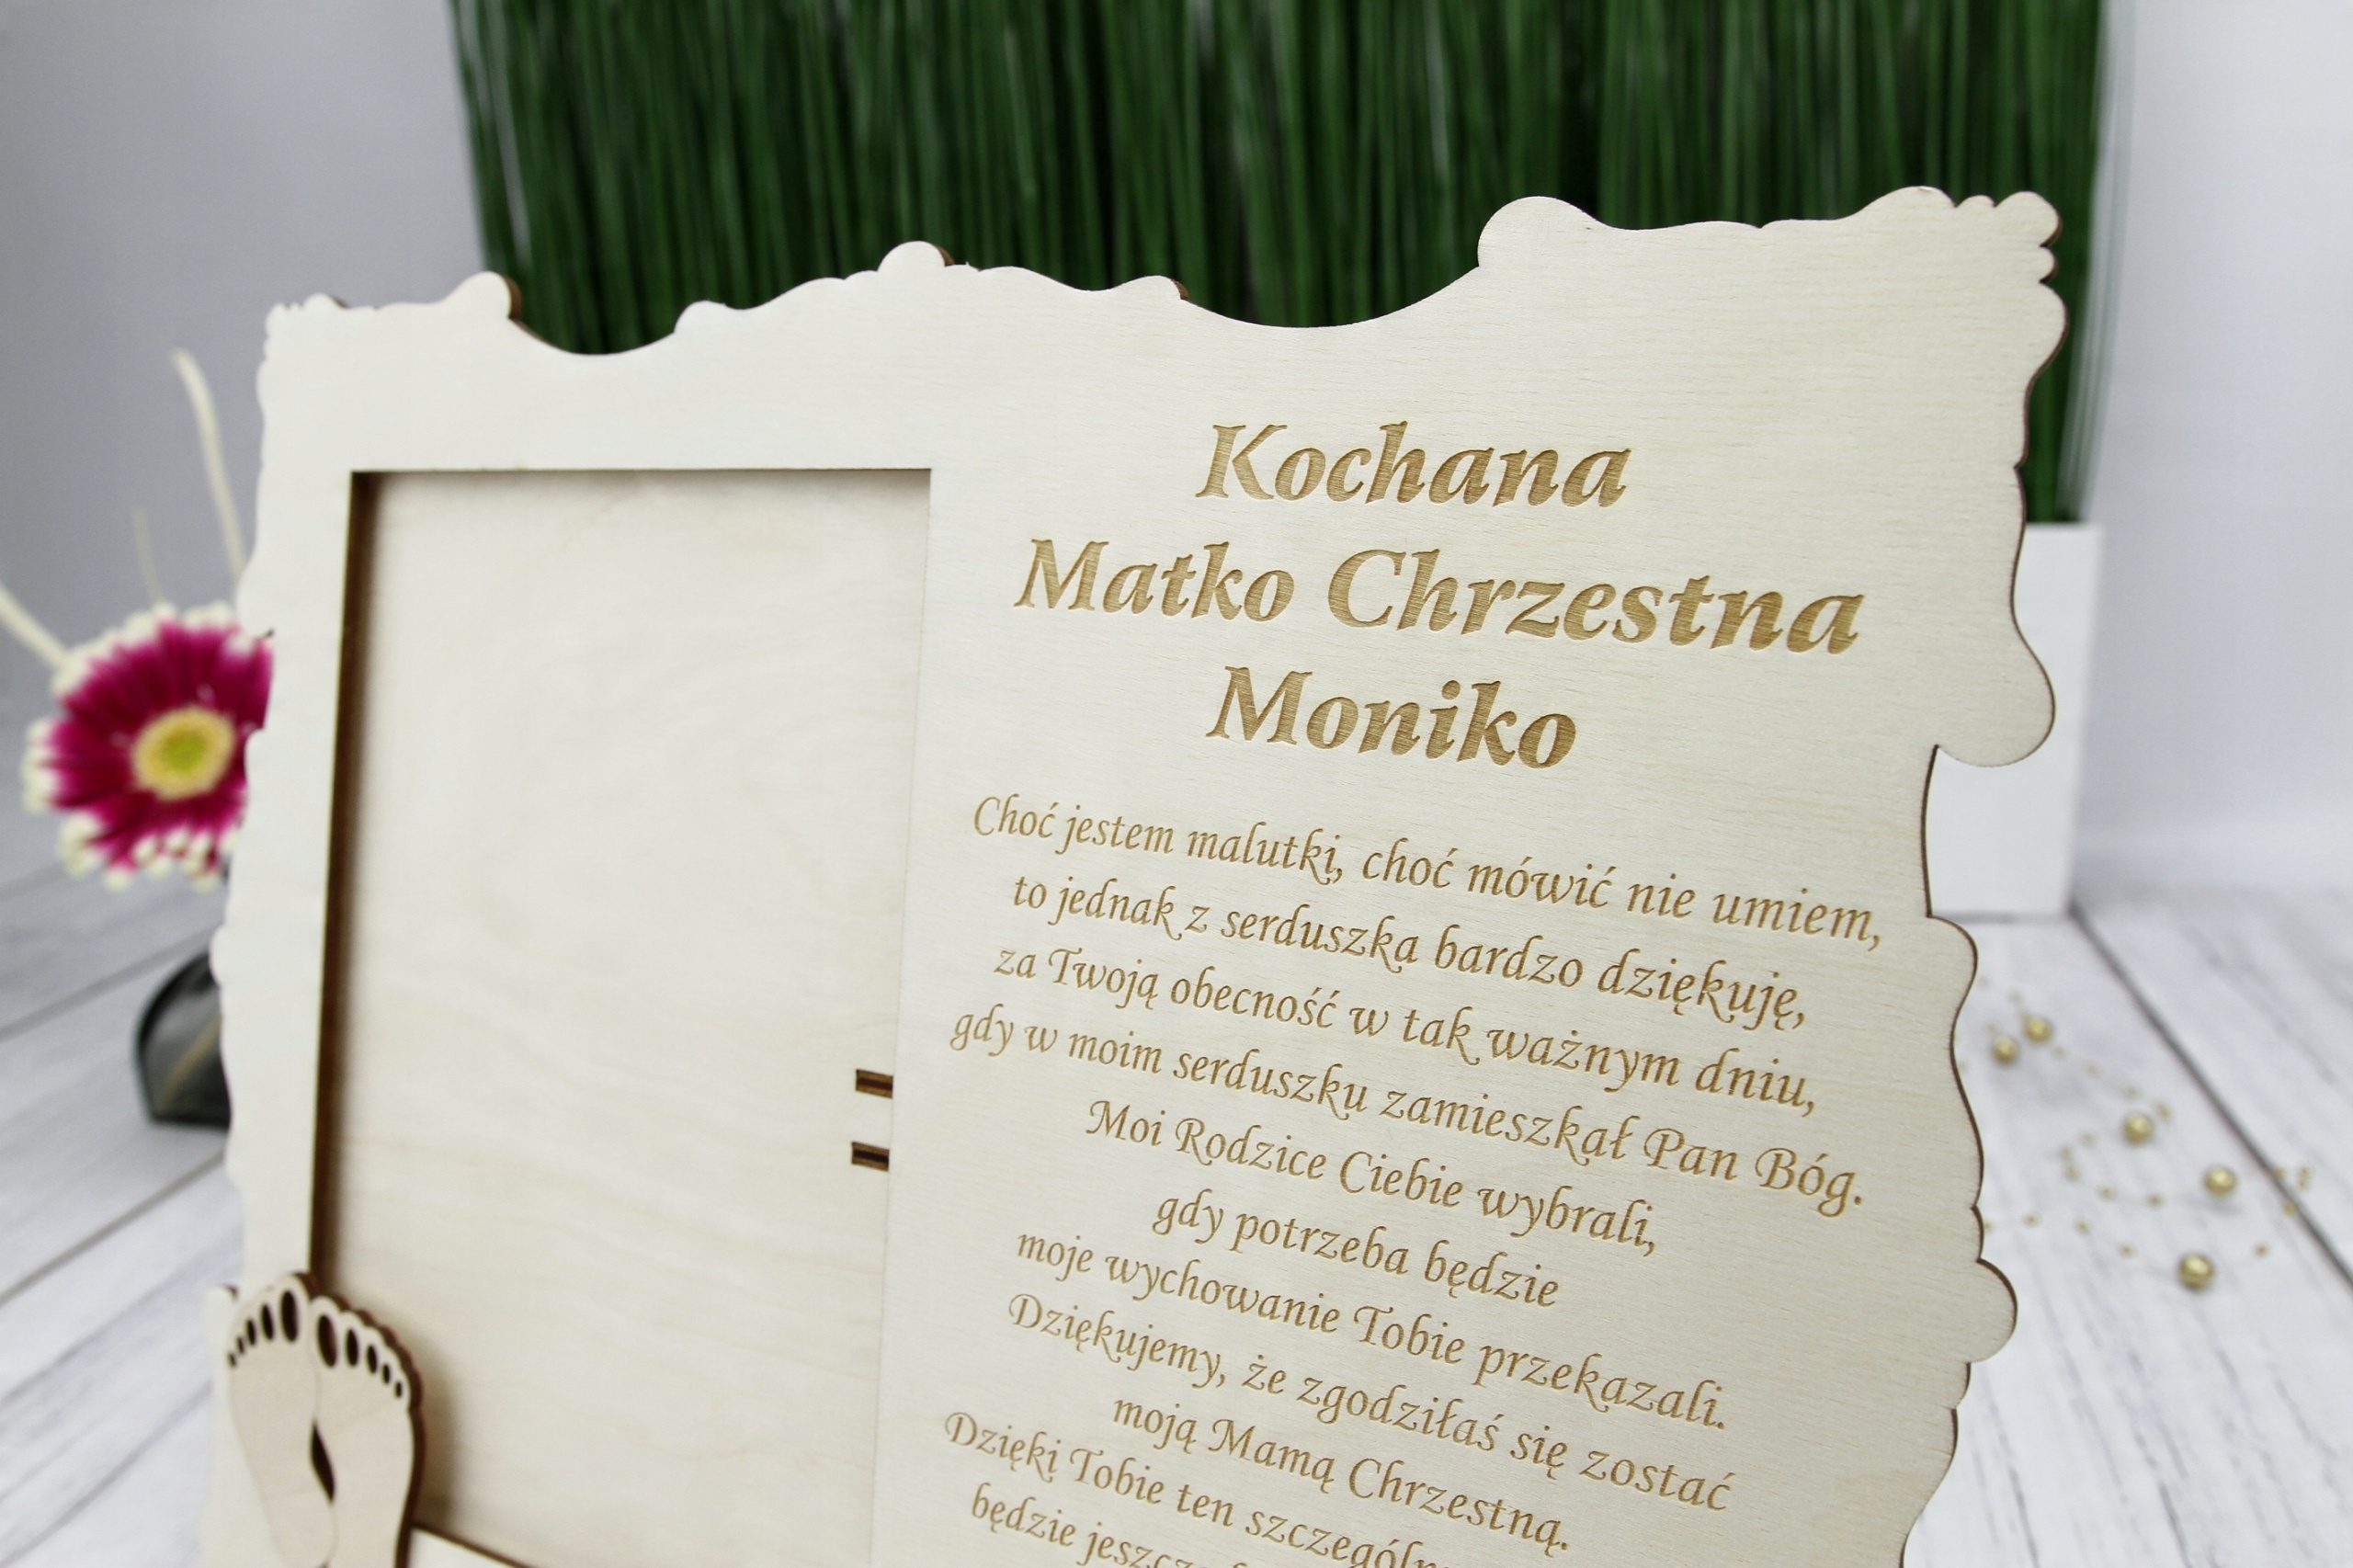 Kochana
Matko Chrzestna
Moniko
Choć jestem malutki, choć mówić nie umiem,
to jednak z serduszka bardzo dziękuję,
za Twoją obecność w tak ważnym dniu,
gdy w moim serduszku zamieszkał Pan Bóg.
Moi Rodzice Ciebie wybrali,
gdy potrzeba będzie
moje wychowanie Tobie przekazali.
Dziękujemy, że zgodziłaś się zostać
moją Mamą Chrzestną.
Dzięki Tobie ten
będzie